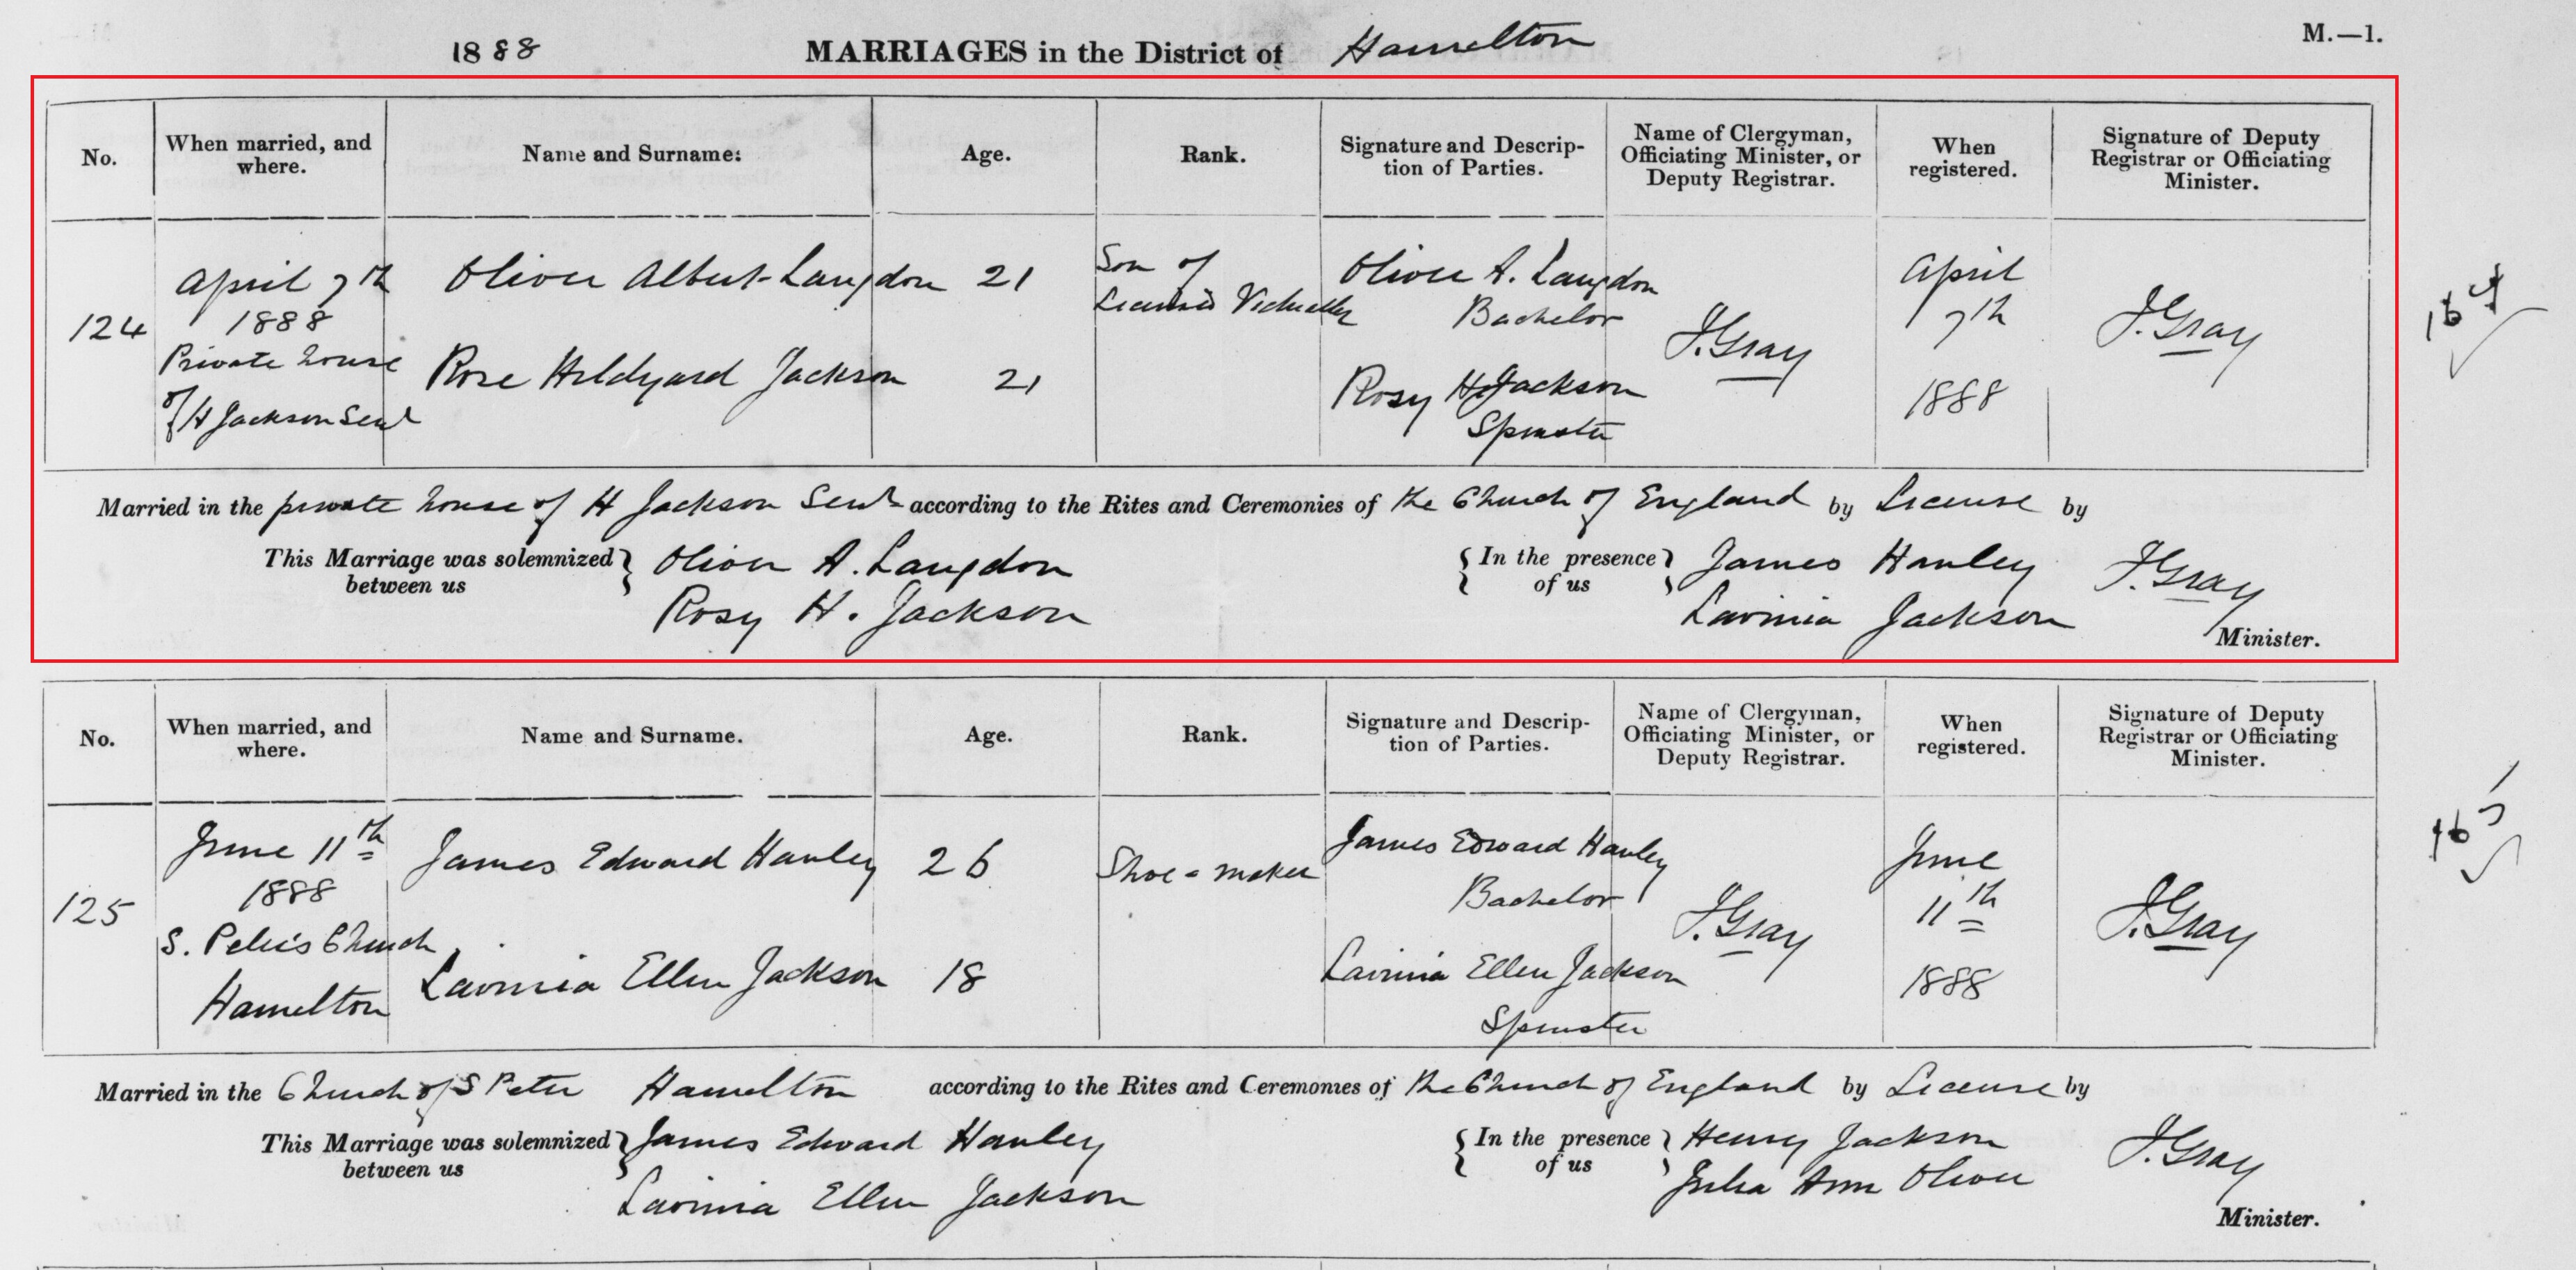 1888 MARRIAGES in the District of Hamelton M.—1.
No. When married, and where. Name and Surname: Age. Rank. Signature and Description of Parties. Name of Clergyman, Officiating Minister, or Deputy Registrar. When registered. Signature of Deputy Registrar or Officiating Minister.
124
April 7th
1888
Private house
of H Jackson Senr
Oliver Albert Langdon 21
Rose Hildyard Jackson 21
Son of
Licensed Victualler
Oliver A. Langdon
Bachelor
Rosy H Jackson
Spinster
J. Gray
April
7th
1888
J. Gray
164
Married in the private house of H Jackson Senr according to the Rites and Ceremonies of the Church of England by License by
This Marriage was solemnized between us Oliver A. Langdon
Rosy H. Jackson
In the presence of us James Hanley
Lavinia Jackson
J. Gray
Minister.
No. When married, and where. Name and Surname. Age. Rank. Signature and Description of Parties. Name of Clergyman, Officiating Minister, or Deputy Registrar. When registered. Signature of Deputy Registrar or Officiating Minister.
125
June 11th
1888
S. Peter's Church
Hamelton
James Edward Hanley 26
Lavinia Ellen Jackson 18
Shoe-maker
James Edward Hanley
Bachelor
Lavinia Ellen Jackson
Spinster
J. Gray
June
11th
1888
J. Gray
165
Married in the Church of S Peter Hamelton according to the Rites and Ceremonies of the Church of England by License by
This Marriage was solemnized between us James Edward Hanley
Lavinia Ellen Jackson
In the presence of us Henry Jackson
Julia Ann Oliver
J. Gray
Minister.